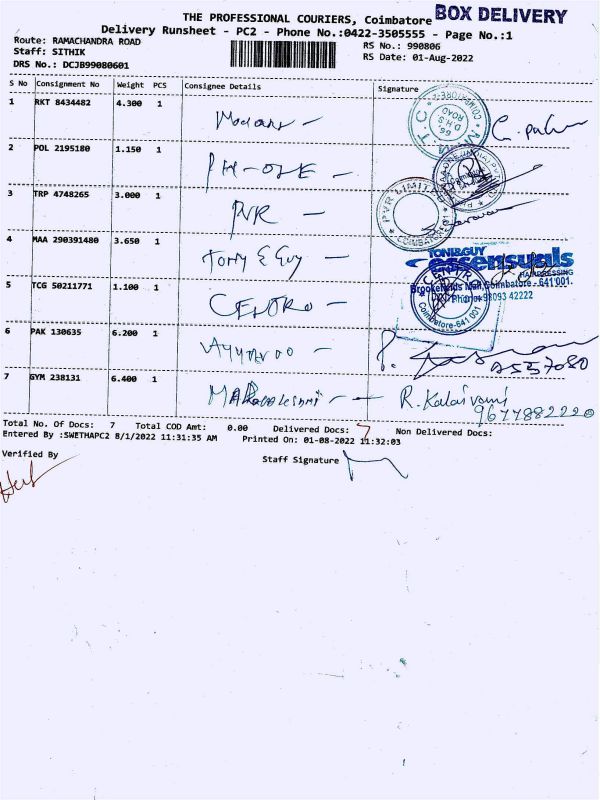 THE PROFESSIONAL COURIERS, Coimbatore BOX DELIVERY
Delivery Runsheet - PC2 - Phone No.:0422-3505555 - Page No.:1
Route: RAMACHANDRA ROAD
RS No.: 990806
Staff: SITHIK
RS Date: 01-Aug-2022
DRS No.: DCJB99080601
S No Consignment No Weight PCS Consignee Details Signature
1 RKT 8434482 4.300 1
2 POL 2195180 1.150 1
3 TRP 4748265 3.000 1 PVR
PVR LIMITED
COIMBATORE
4 MAA 290391480 3.650 1 Tony & Guy
TONI&GUY
essensuals
HAIRDRESSING
Brookefields Mall, Coimbatore - 641 001.
Phone: 98093 42222
5 TCG 50211771 1.100 1 CENTRO
Coimbatore-641 001
6 PAK 130635 6.200 1
7 GYM 238131 6.400 1 R. Kalaivani
9677882220
Total No. Of Docs: 7 Total COD Amt: 0.00 Delivered Docs: 7 Non Delivered Docs:
Entered By :SWETHAPC2 8/1/2022 11:31:35 AM Printed On: 01-08-2022 11:32:03
Verified By
Staff Signature